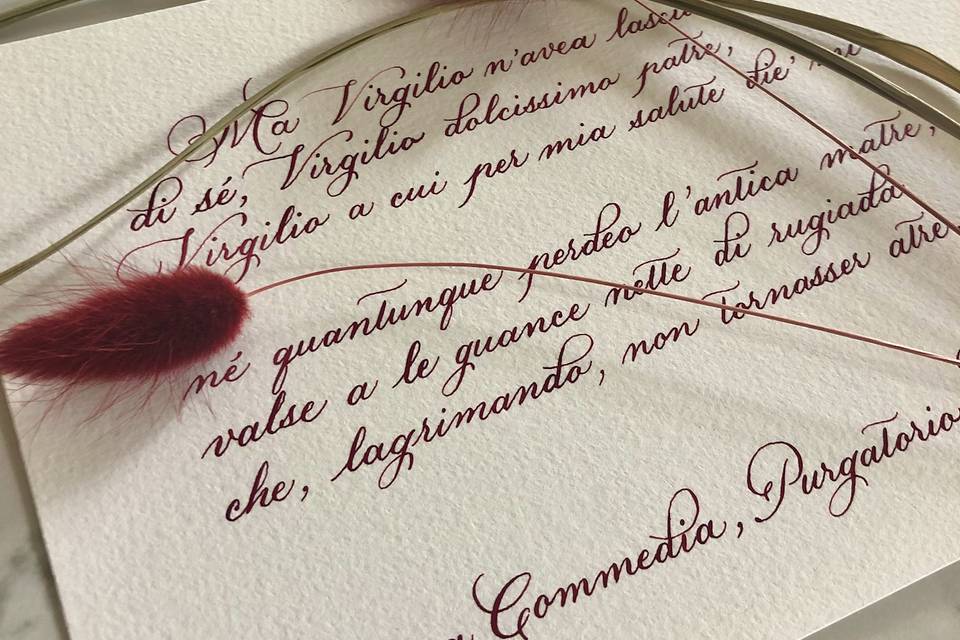 Ma Virgilio n'avea
di sé, Virgilio dolcissimo patre,
Virgilio a cui per mia salute die'
né quantunque perdeo l'antica matre,
valse a le guance nette di rugiada
che, lagrimando, non tornasser atre
Commedia, Purgatorio